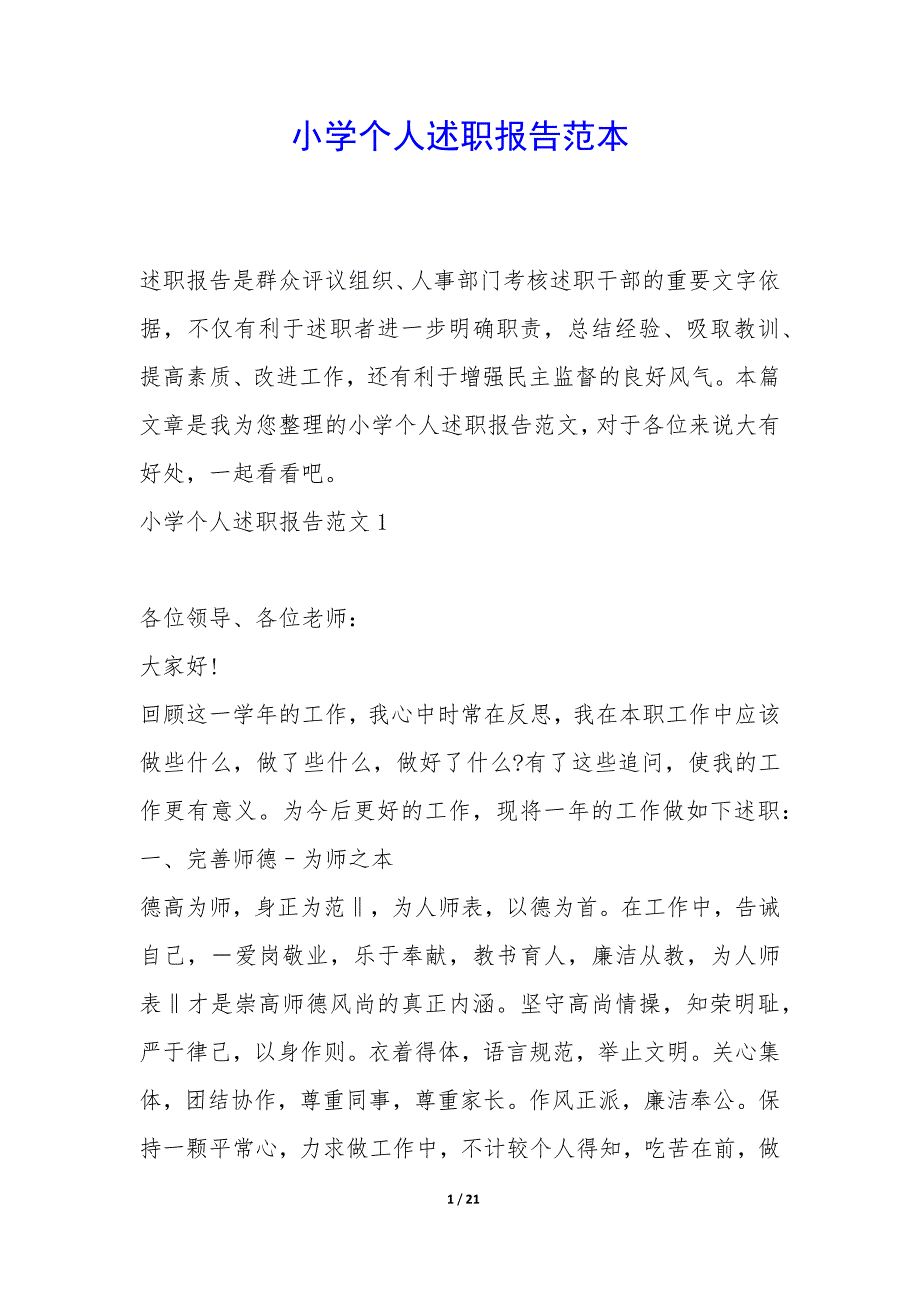 小学个人述职报告范本
述职报告是群众评议组织、人事部门考核述职干部的重要文字依
据，不仅有利于述职者进一步明确职责，总结经验、吸取教训、
提高素质、改进工作，还有利于增强民主监督的良好风气。本篇
文章是我为您整理的小学个人述职报告范文，对于各位来说大有
好处，一起看看吧。
小学个人述职报告范文 1
各位领导、各位老师：
大家好！
回顾这一学年的工作，我心中时常在反思，我在本职工作中应该
做些什么，做了些什么，做好了什么?有了这些追问，使我的工
作更有意义。为今后更好的工作，现将一年的工作做如下述职：
一、完善师德–为师之本
德高为师，身正为范‖，为人师表，以德为首。在工作中，告诫
自己，―爱岗敬业，乐于奉献，教书育人，廉洁从教，为人师
表‖才是崇高师德风尚的真正内涵。坚守高尚情操，知荣明耻，
严于律己，以身作则。衣着得体，语言规范，举止文明。关心集
体，团结协作，尊重同事，尊重家长。作风正派，廉洁奉公。保
持一颗平常心，力求做工作中，不计较个人得知，吃苦在前，做
1 / 21